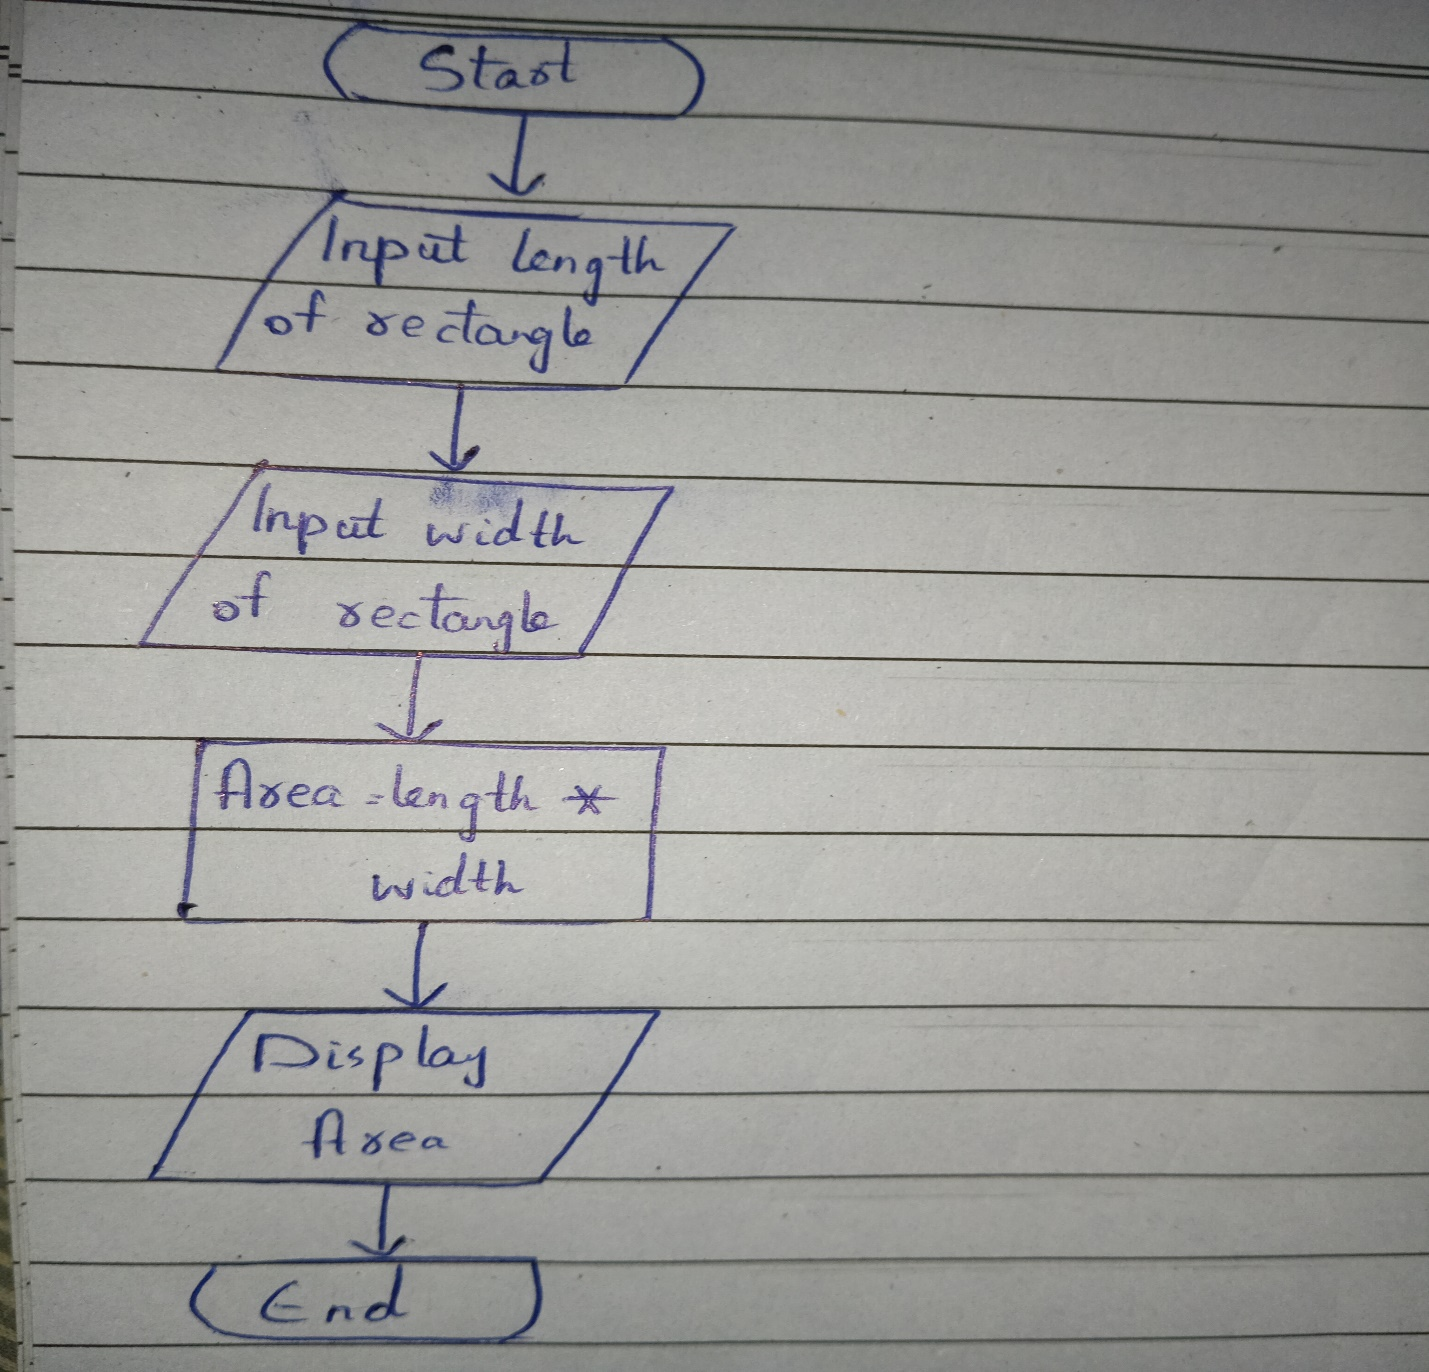 Start
Input length
of rectangle
Input width
of rectangle
Area = length *
width
Display
Area
End